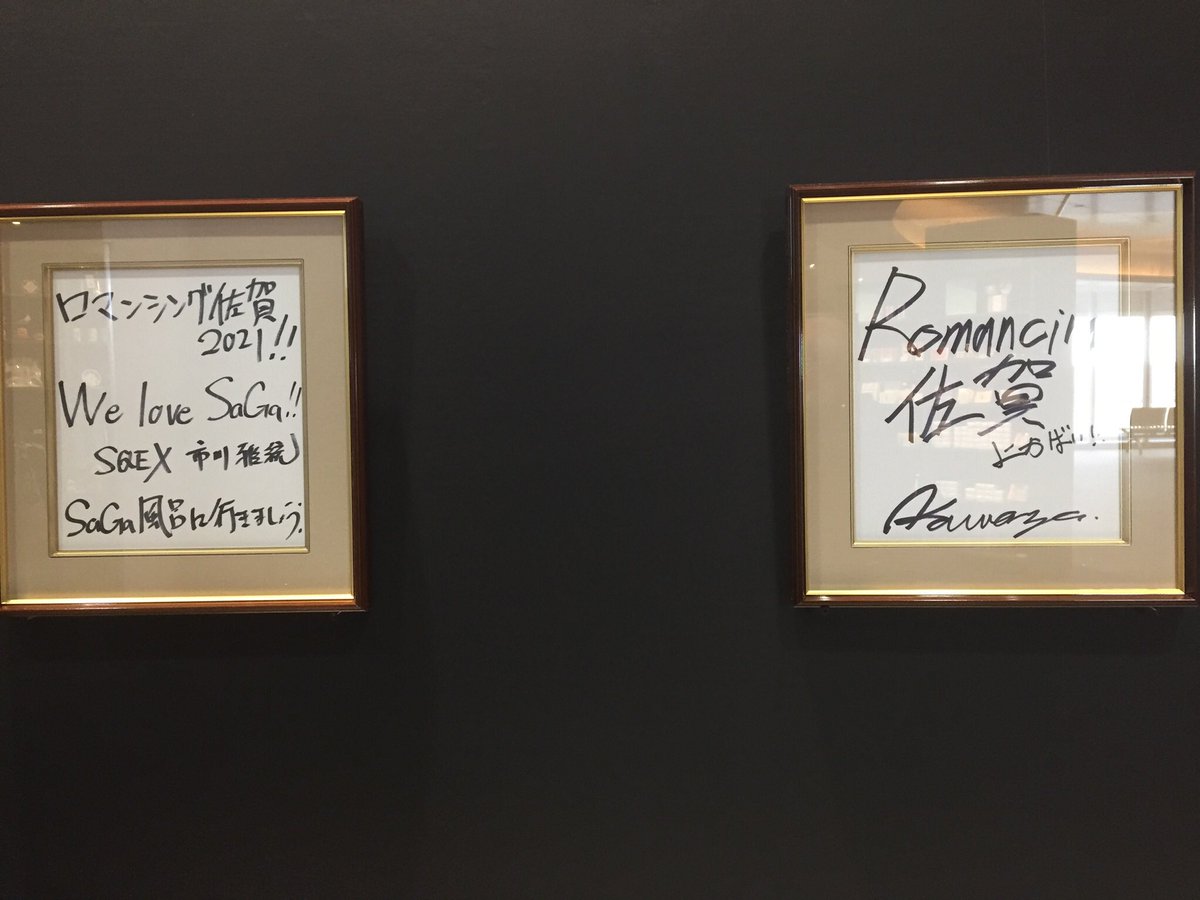 ロマンシング佐賀
2021!!
We love SaGa!!
SQEX 市川雅統
SaGa風呂に行きましょう.
Romancin
佐賀
よかばい!